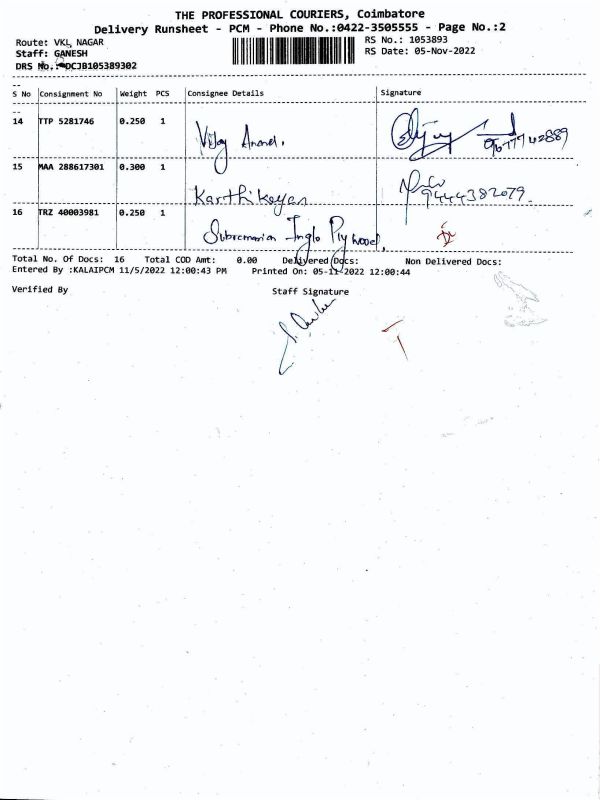 THE PROFESSIONAL COURIERS, Coimbatore
Delivery Runsheet - PCM - Phone No.:0422-3505555 - Page No.:2
Route: VKL, NAGAR RS No.: 1053893
Staff: GANESH RS Date: 05-Nov-2022
DRS No.: DCJB105389302
S No Consignment No Weight PCS Consignee Details Signature
14 TTP 5281746 0.250 1 Vijay Anand.
15 MAA 288617301 0.300 1 Karthikeyan 9444382079.
16 TRZ 40003981 0.250 1 Subramanian Inglo Plywood,
Total No. Of Docs: 16 Total COD Amt: 0.00 Delivered Docs: Non Delivered Docs:
Entered By :KALAIPCM 11/5/2022 12:00:43 PM Printed On: 05-11-2022 12:00:44
Verified By Staff Signature